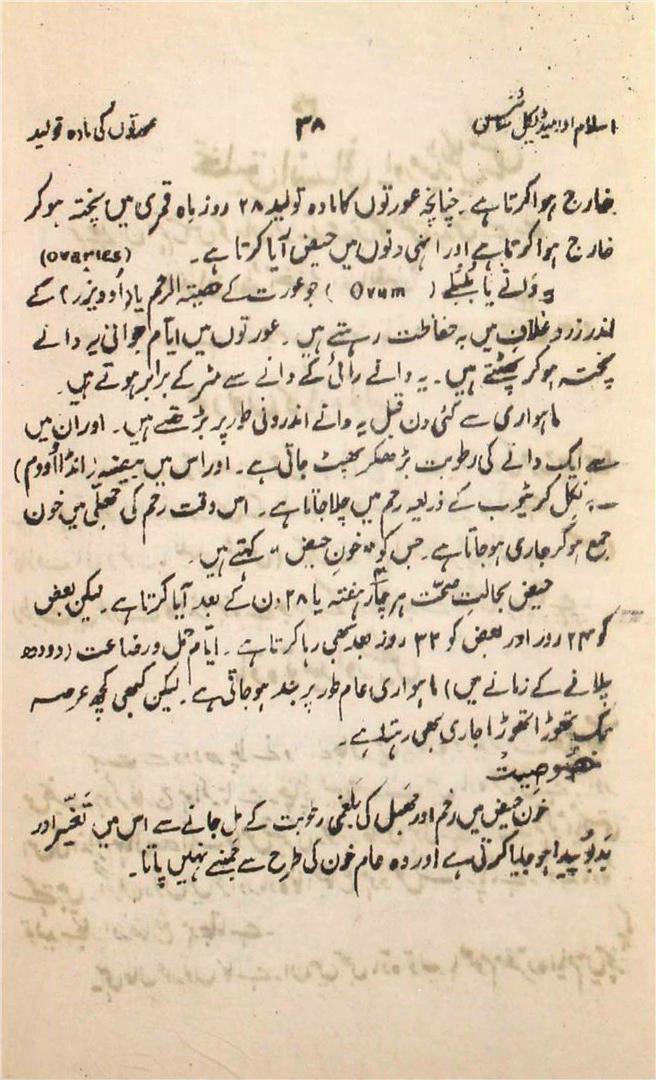 اسلام اور میڈیکل سائنس ۳۸ عورتوں کی مادہ تولید
خارج ہوا کرتا ہے۔ چنانچہ عورتوں کا مادہ تولید ۲۸ روز ماہ قمری میں پختہ ہو کر
خارج ہوا کرتا ہے اور انہی دنوں میں حیض آیا کرتا ہے۔ (ovaries)
دانے یا بُلبُلے ( Ovum ) جو عورت کے خصیتہ الرحم یا (اُوویرز) کے
اندر زرد غلاف میں بہ حفاظت رہتے ہیں۔ عورتوں میں ایّام جوانی یہ دانے
پختہ ہو کر پھٹتے ہیں۔ یہ دانے رائی کے دانے سے مٹر کے برابر ہوتے ہیں۔
ماہواری سے کئی دن قبل یہ دانے اندرونی طور پر بڑھتے ہیں۔ اور ان میں
سے ایک دانے کی رطوبت بڑھکر پھٹ جاتی ہے۔ اور اس میں بیضہ (انڈا اُووم)
نکل کر ٹیوب کے ذریعہ رحم میں چلا جاتا ہے۔ اس وقت رحم کی جھلّی میں خون
جمع ہو کر جاری ہو جاتا ہے۔ جس کو "خونِ حیض" کہتے ہیں۔
حیض بحالتِ صحّت ہر چار ہفتہ یا ۲۸ دن کے بعد آیا کرتا ہے۔ لیکن بعض
کو ۲۴ روز اور بعض کو ۳۲ روز بعد بھی رہا کرتا ہے۔ ایّام حمل و رضاعت (دودھ
پلانے کے زمانے میں) ماہواری عام طور پر بند ہو جاتی ہے۔ لیکن کبھی کچھ عرصہ
تک تھوڑا تھوڑا جاری بھی رہتا ہے۔
خصُوصِیتْ
خون حیض میں رحم اور مہبل کی بلغمی رطوبت کے مل جانے سے اس میں تَغَیّر اور
بَدبُو پیدا ہو جایا کرتی ہے اور وہ عام خون کی طرح سے جَمنے نہیں پاتا۔